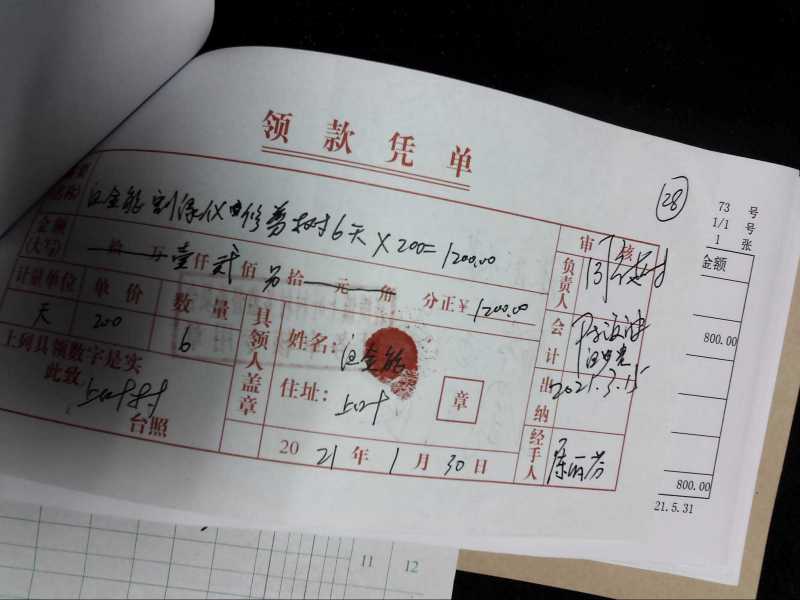 领款凭单
28
73 号
1/1 号
1 张
金额
汪金能割绿化 修剪树6天×200=1200.00
审核
金额(大写) 拾 万 壹仟 贰佰 另拾 元 角 分正¥1200.00
负责人
计量单位 单价 数量
天 200 6
具领人盖章
姓名: 汪金能
住址: 上叶
章
会计
800.00
出纳
2021.3.15
经手人
上列具领数字是实
此致 上叶村
台照
2021年1月30日
800.00
21.5.31
11 12